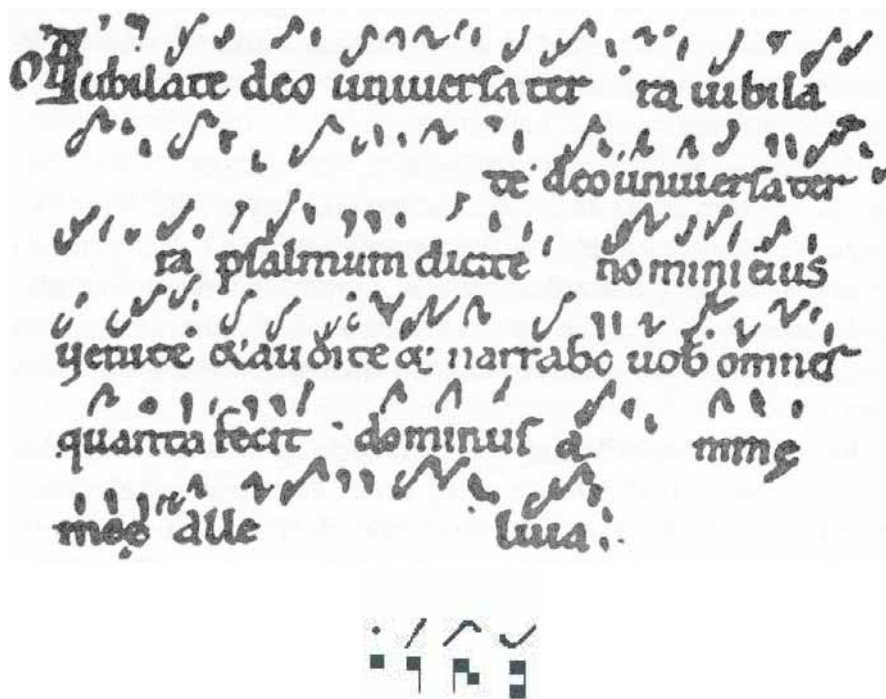 Jubilate deo universa ter ra iubila
te deo universa ter
ra psalmum dicite nomini eius
venite & audite & narrabo vob omnes
quanta fecit dominus a nime
mee alle luia